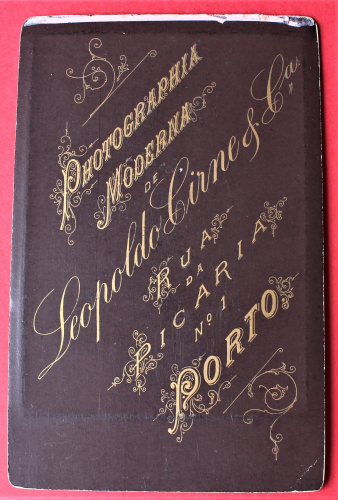 PHOTOGRAPHIA
MODERNA
DE
Leopoldo Cirne & Ca,,
RUA
DA
PICARIA
Nº 1
PORTO